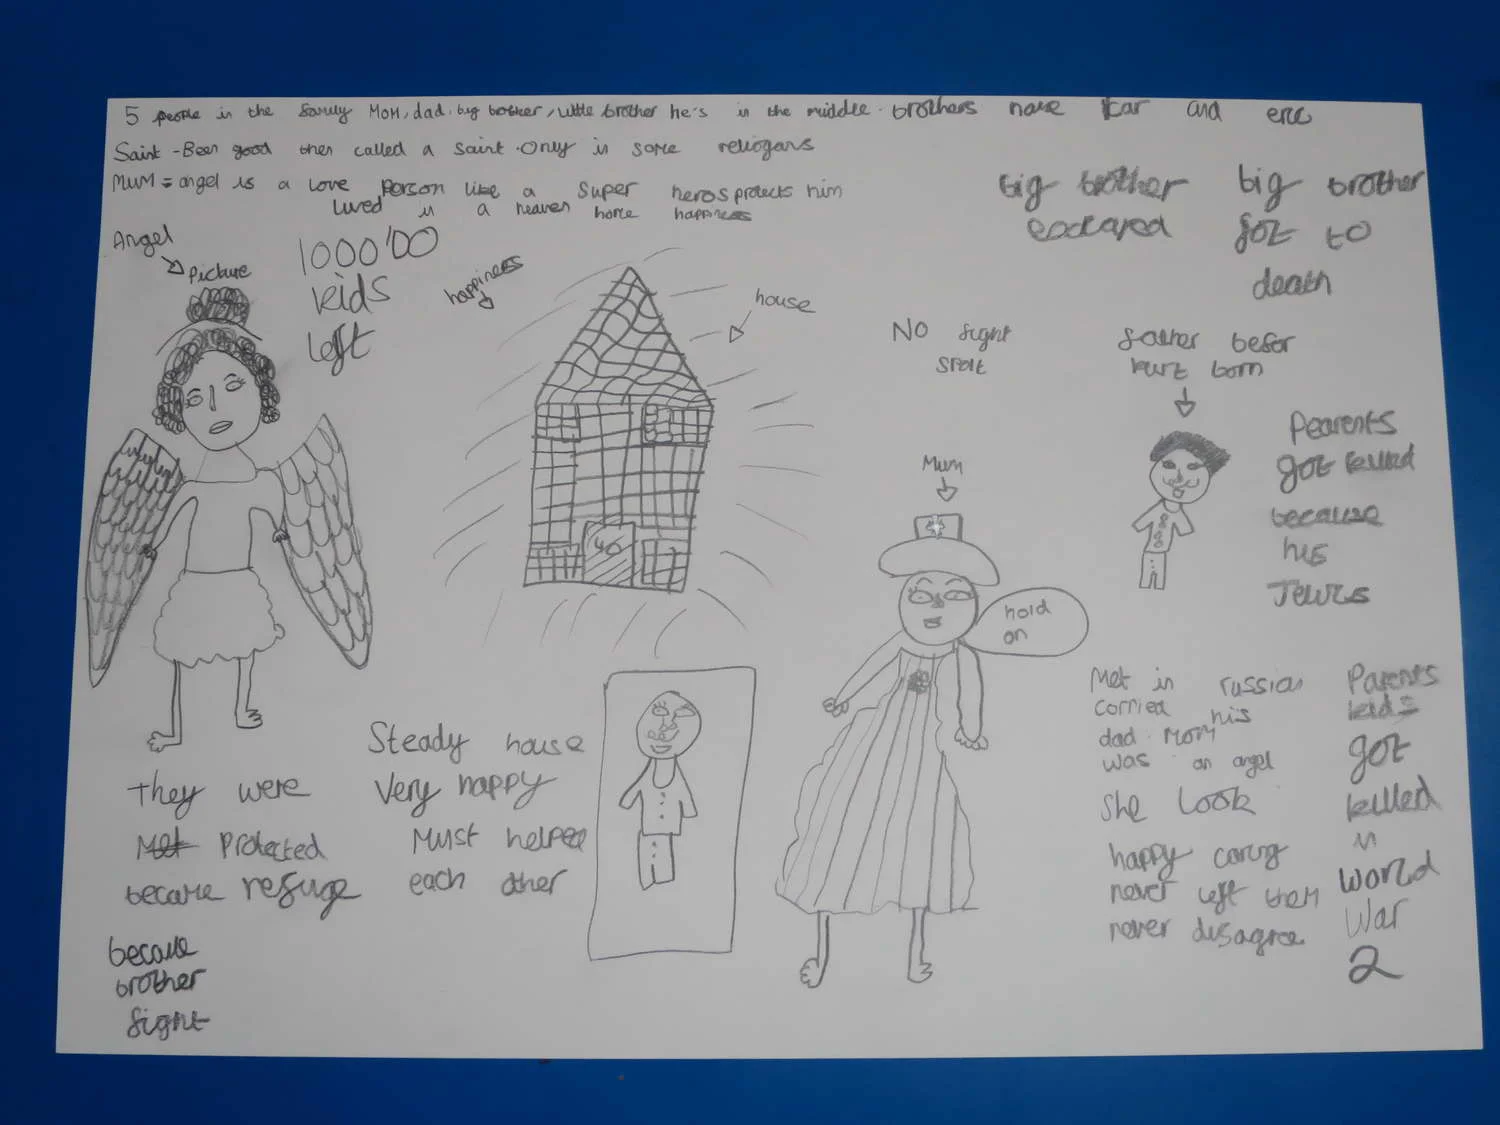 5 people in the family Mom, dad, big brother, little brother he's in the middle. brothers name and eric
Saint - Been good then called a saint. Only in some reliogans
MUM = angel is a love person like a super heros protects him
lived in a heaven home happiness
Angel
Picture
1000'00
kids
left
happiness
house
big brother
escaped
big brother
got to
death
No fight
split
father befor
kurt born
Pearents
got killed
because
his
Jewis
Mum
hold
on
40
Met in russian
corried his
dad. MOM
was an angel
She look
happy caring
never left them
never disagree
Parents
kids
got
killed
in
World
War
2
Steady house
Very happy
Must helped
each other
they were
Met protected
became refuge
because
brother
fight